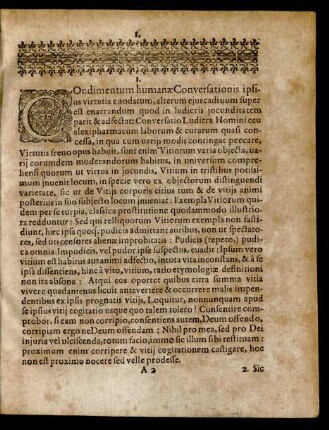 I.
I.
COndimentum humanæ Conversationis ipsi-
us virtutis e audatum, alterum ejus caduum super
est enarrandum quod in ludicris jocunditatem
parit & adfectat: Conversatio Ludicra Homini ceu
alexipharmacum laborum & curarum quasi con-
cessa, in qua cum varijs modis contingat peccare,
Virtutis freno opus habuit, sunt enim Vitiorum varia objecta, va-
rij eorumdem moderandorum habitus, in universum comprehen-
si quorum ut virtus in jocundis, Vitium in tristibus potissi-
mum juvenit locum, in specie vero ex objectorum distinguendi
varietate, sic ut de Vitijs corporis citius tum & de vitijs animi
posterius in suo subjecto locum inveniat: Exempla Vitiorum qui-
dem per se turpia, classica prostitutione quodammodo illustrio-
ra redduntur: Sed qui relliquorum Vitiorum exempla non fasti-
diunt, hæc ipsa quoq; pudicis admittant auribus, non ut spectato-
res, sed ut censores alienæ improbitatis: Pudicis (repeto,) pudi-
ca omnia: Impudicis, vel pudor ipse suspectus, euadit: Ipsum vero
vitium est habitus aut animi adfectio, in tota vita inconstans, & à se
ipsâ dissentiens, hinc à vito, vitium, ratio etymologiæ definitioni
non ita absona: Atqui eos oportet quibus citra summa vitia
vivere quadantenus licuit antevertere & occurrere malis impen-
dentibus ex ipsis prognatis vitijs, Loquitur, nonnunquam apud
se ipsius vitij cogitatio usque quo talem tolero? Consentire com-
probor, si eam non corripio, consentiens autem, Deum offendo,
corripum ergo ne Deum offendam: Nihil pro mea, sed pro Dei
injuria vel ulciscenda, totum facio, immo sic illum sibi restituam:
proximum enim corripere & vitij cogitationem castigare, hoc
non est proximo nocere sed velle prodesse.
A 2
2. Sic